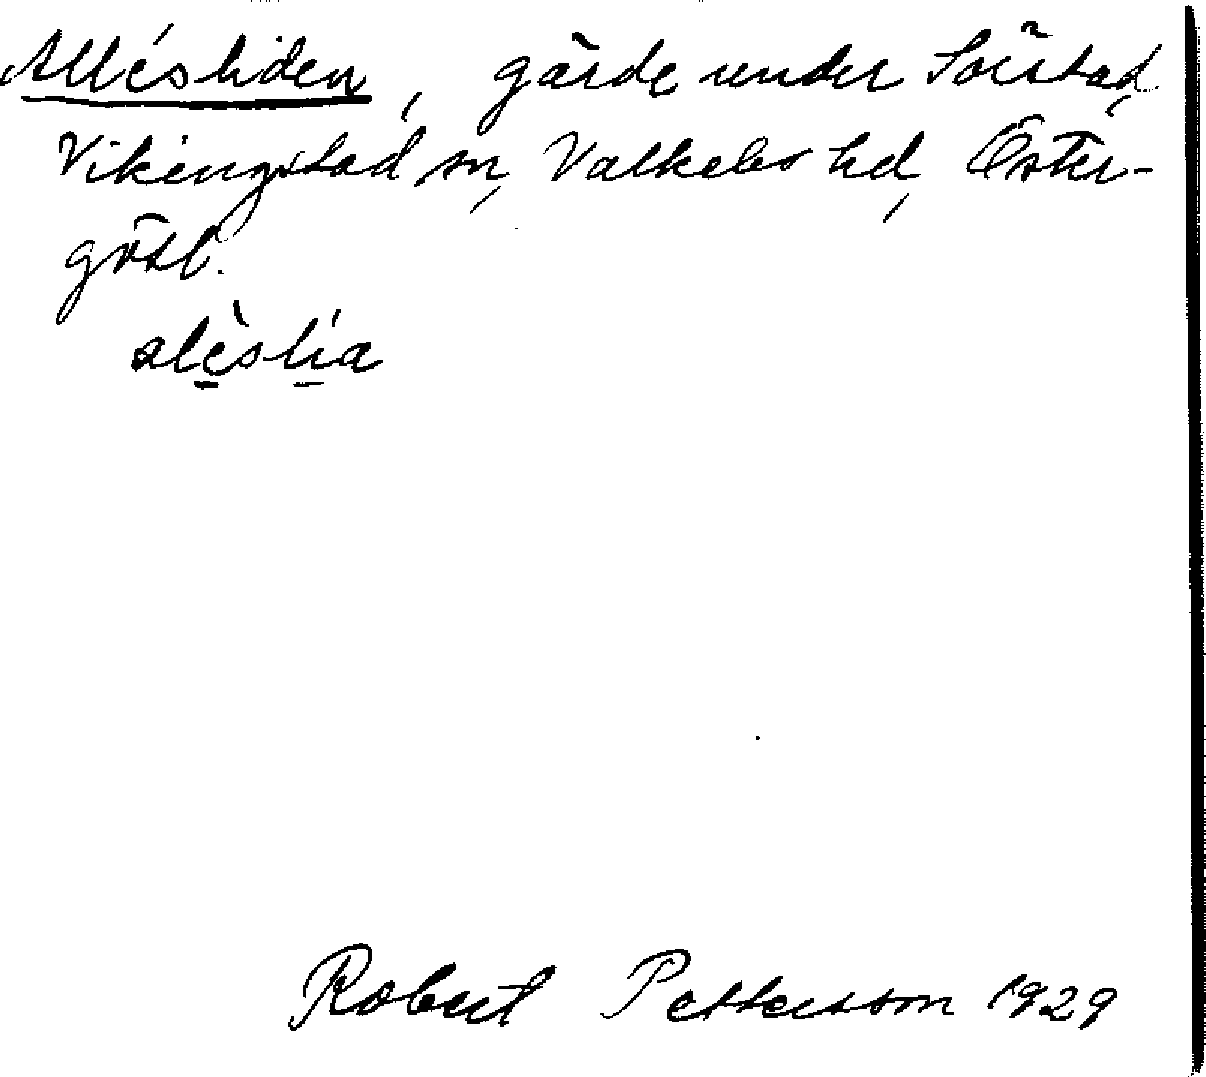 Alléshiden, gärde under Sörstad,
Vikingstad sn, Valkebo hd, Öster-
götl.
aléslia
Robert Pettersson 1929